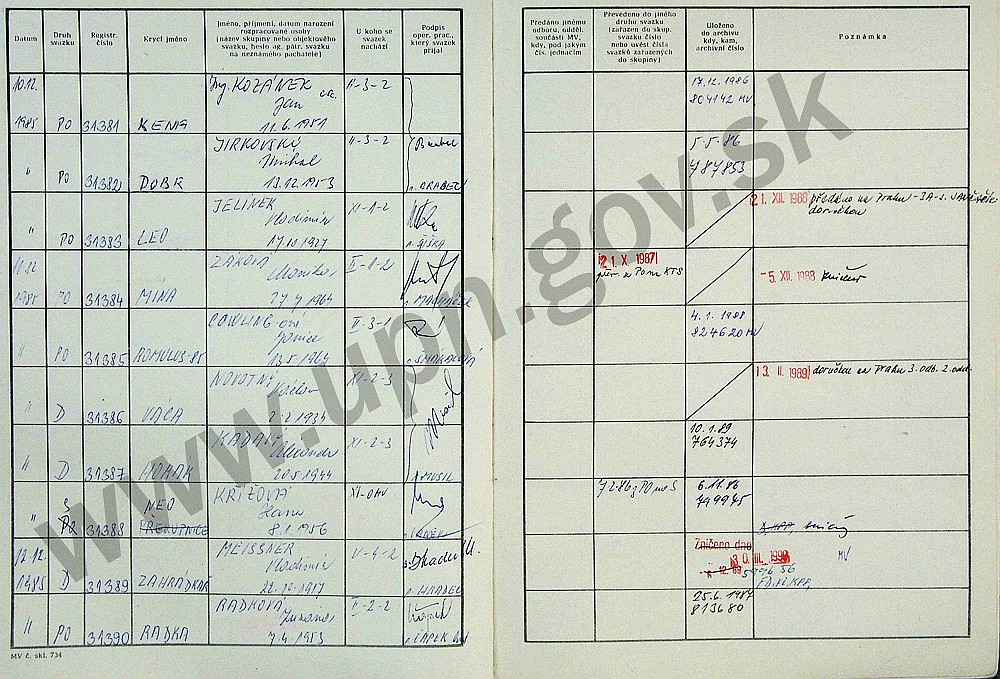 Datum
Druh
svazku
Registr.
číslo
Krycí jméno
Jméno, příjmení, datum narození
rozpracované osoby
(název skupiny nebo objektového
svazku, heslo ag. pátr. svazku
na neznámého pachatele)
U koho se
svazek
nachází
Podpis
oper. prac.,
který svazek
přijal
Předáno jinému
odboru, odděl.
součásti MV,
kdy, pod jakým
čís. jednacím
Převedeno do jiného
druhu svazku
(zařazen do skup.
svazku číslo
nebo uvést čísla
svazků zařazených
do skupiny)
Uloženo
do archivu
kdy, kam,
archivní číslo
Poznámka
10.12. Ing. KOZÁNEK CSc. II-3-2 17.12.1986
Jan 804142 MV
1985 PO 31381 KENG 11.6.1951
JIRKOVSKÝ II-3-2 5.5.86
Michal 787853
" PO 31382 DOBR 13.12.1953
JELINEK XI-1-2 21. XII. 1988 předáno na Prahu
Vladimír
" PO 31383 LEO 17.10.1927
11.12. ZAKOVÁ II-1-2 21. X. 1987
Monika -5. XII. 1988
1985 PO 31384 MÍNA 27.4.1964
COWLING-ová II-3-1 4.1.1988
Janice 824620 MV
" PO 31385 ROMULUS-85 13.5.1964
NOVOTNÝ XI-2-3 13. II. 1989 doručeno na Prahu 3.odb. 2.odd.
Václav
" D 31386 VÁCA 2.2.1934
KADALY XI-2-3 10.1.89
Alexander 764374
" D 31387 HORAK 20.5.1944 MUSIL
S NEO KŘÍŽOVÁ XI-OMV 6.11.86
Hana 799975
" 31388 PŘEKUPNICE 8.1.1956
12.12. MEISSNER V-4-2 Zničeno dne
Vladimír 30. III. 1990 MV
1985 D 31389 ZAHRÁDKÁŘ 22.10.1917
RADKOVÁ II-2-2 25.6.1987
Zuzana 813680
" PO 31390 RADKA 7.4.1953
MV č. skl. 734
www.upn.gov.sk